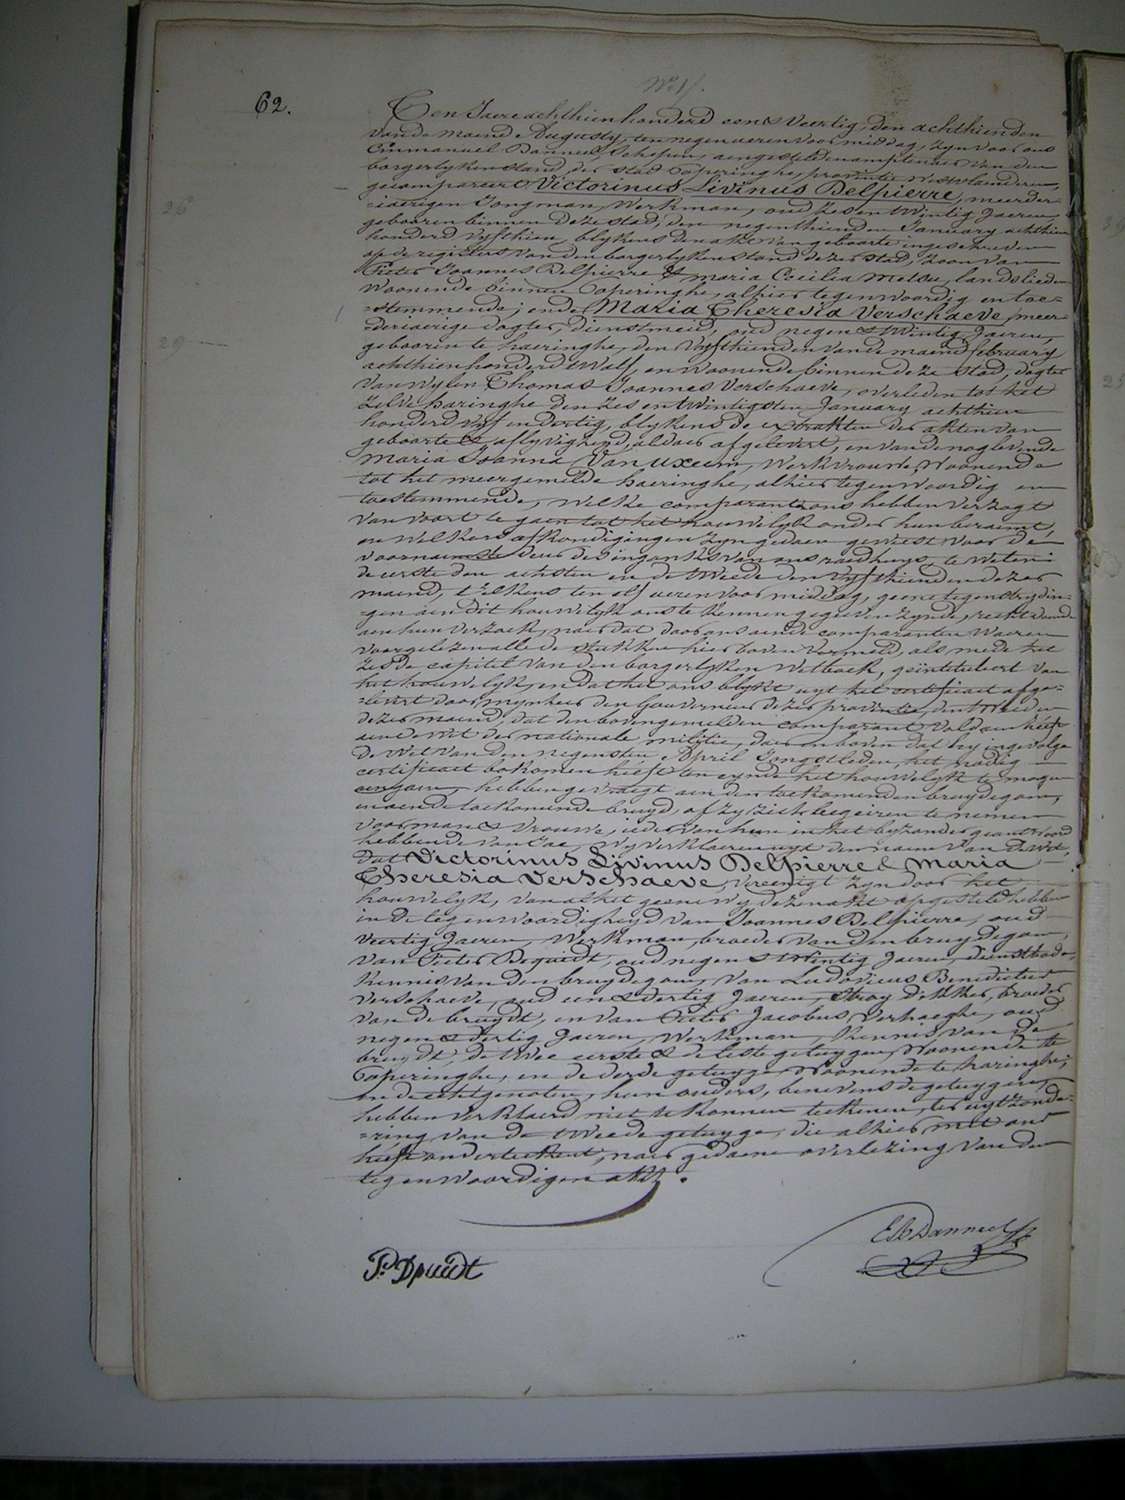 62.
Ten Jaere achthien honderd een & Veertig, den achthienden
van de maend Augusty, ten negen ueren voor middag, zyn voor ons
Emmanuel Banneel, Schepen, aengestelden amptenaer van den
borgerlyken stand der stad Poperinghe, provintie Westvlaenderen,
gecompareert Victorinus Livinus Delpierre, meerder-
=jaerigen Jongman, Werkman, oud zes en twintig Jaeren,
gebooren binnen deze stad, den negenthienden January achthien
honderd vyfthien, blykens den akt van geboorte ingeschreven
op de registers van den borgerlyken stand dezer stad, zoon van
Pieter Joannes Delpierre & maria Cecilia Melou, landslieden
woonende binnen Poperinghe, alhier tegenwoordig en toe-
=stemmende; ende Maria Theresia Verschaeve, meer-
derjaerige dogter, dienstmeid, oud negen & twintig Jaeren,
gebooren te haeringhe, den vyfthienden van de maend february
achthien honderd twalf, en woonende binnen deze stad, dogter
van wylen Thomas Joannes Verschaeve, overleden tot het
zelve haringhe den zes en twintigsten January achthien
honderd vyf en dertig, blykens de extrakten der akten van
geboorte & aflyvigheid, aldaer afgelevert, en van de nog levende
Maria Joanna Van uxeem, Werkvrouwe, Woonende
tot het meergemelde haeringhe, alhier tegenwoordig en
toestemmende, welke comparanten ons hebben verzogt
van voort te gaen tot het houwelyk onder hun beraemt,
en welkers afkondigingen zyn gedaen geweest voor de
voornaemste deur des ingangks van ons raedhuys, te weten:
de eerste den achsten en de tweede den vyfthienden dezer
maend, t'elkens ten elf ueren voor middag, geene tegenstrydin-
=gen aen dit houwelyk ons te kennen gegeven zynde, recht doende
aen hun verzoek, naer dat door ons aen de comparanten waeren
voorgelezen alle de stukken hier boven vermeld, als mede het
zesde capitel van den borgerlyken Wetboek, geintituleert van
het houwelyk, en dat het ons blykt uyt het certificaet afge-
=levert door mynheer den Gouverneur dezer provintie, den tweeden
dezer maend, dat den bovengemelden comparant voldaen heeft
aen de Wet der nationale militie, daer en boven dat hy ingevolge
de Wet van den negensten April Jongstleden, het nodig
certificaet bekomen heeft ten eynde het houwelyk te mogen
aengaen, hebben gevraegt aen den toekomenden bruydegom,
en aen de toekomende bruyd of zy zich begeiren te nemen
voor man & vrouwe, ieder van hun en het byzonder geantwoord
hebbende van Jae, wy verklaeren uyt den naem van de Wet,
dat Victorinus Livinus Delpierre & Maria
Theresia Verschaeve, vereenigt zyn door het
houwelyk, van al het geene wy dezen akt opgesteld hebben
in de tegenwoordigheyd van Joannes Delpierre, oud
veertig Jaeren, Werkman, broeder van den bruydegom,
van Pieter Dequidt, oud negen & twintig Jaeren, dienstbode,
kennis van den bruydegom, van Ludovicus Benedictus
Verschaeve, oud een & dertig Jaeren, Stroy dekker, broeder
van de bruydt, en van Pieter Jacobus Verhaeghe, oud
negen & dertig Jaeren, Werkman, kennis van de
bruydt, de twee eerste & de leste getuygen, Woonende te
Poperinghe, en de derde getuyge Woonende te haringhe;
en de echtgenoten, hun ouders, benevens de getuygen
hebben verklaerd niet te konnen teekenen, ter uytzonde-
=ring van de tweede getuyge, die alhier met ons
heeft onderteekent, naer gedaene overlezing van den
tegenwoordigen akt.